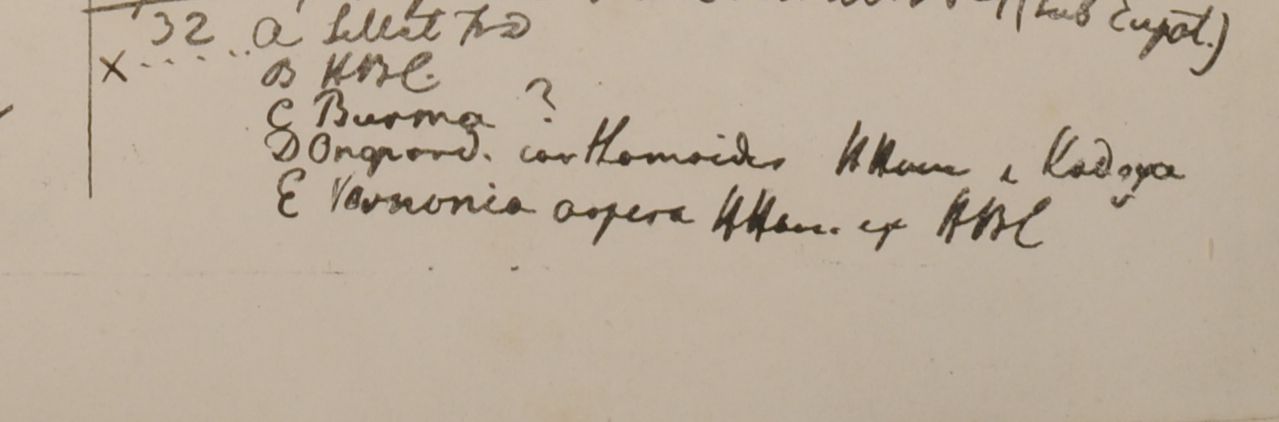 (sub Eupat.)
32 a Sillet FD
X ..... B HBC.
C Burma ?
D Ongrand. carthamoides HHam e Kadoya
E Vernonia aspera HHam. ex HBC